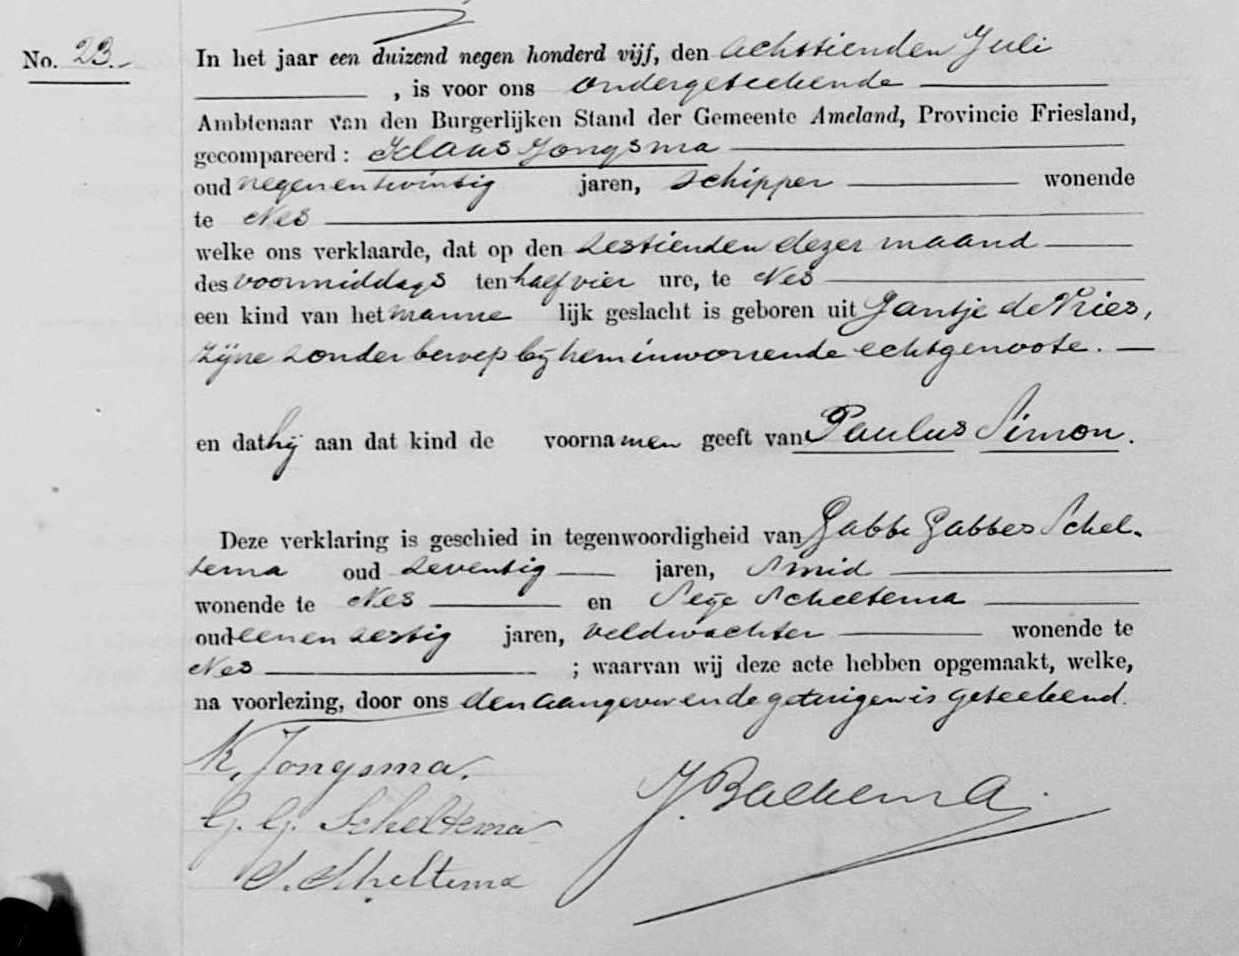 No. 23.- In het jaar een duizend negen honderd vijf, den achttienden Juli
, is voor ons ondergeteekende
Ambtenaar van den Burgerlijken Stand der Gemeente Ameland, Provincie Friesland,
gecompareerd: Klaas Jongsma
oud negenentwintig jaren, schipper wonende
te Nes
welke ons verklaarde, dat op den zestienden dezer maand
des voormiddags ten half vier ure, te Nes
een kind van het manne lijk geslacht is geboren uit Jantje de Vries,
zijne zonder beroep bij hem inwonende echtgenoote.
en dat hij aan dat kind de voorna men geeft van Paulus Simon.
Deze verklaring is geschied in tegenwoordigheid van Gabbe Gabbes Schel-
tema oud zeventig jaren, smid
wonende te Nes en Scheltema
oud eenenzestig jaren, veldwachter wonende te
Nes ; waarvan wij deze acte hebben opgemaakt, welke,
na voorlezing, door ons den aangever en de getuigen is geteekend.
K. Jongsma.
G. G. Scheltema
S. Scheltema
J. Backema